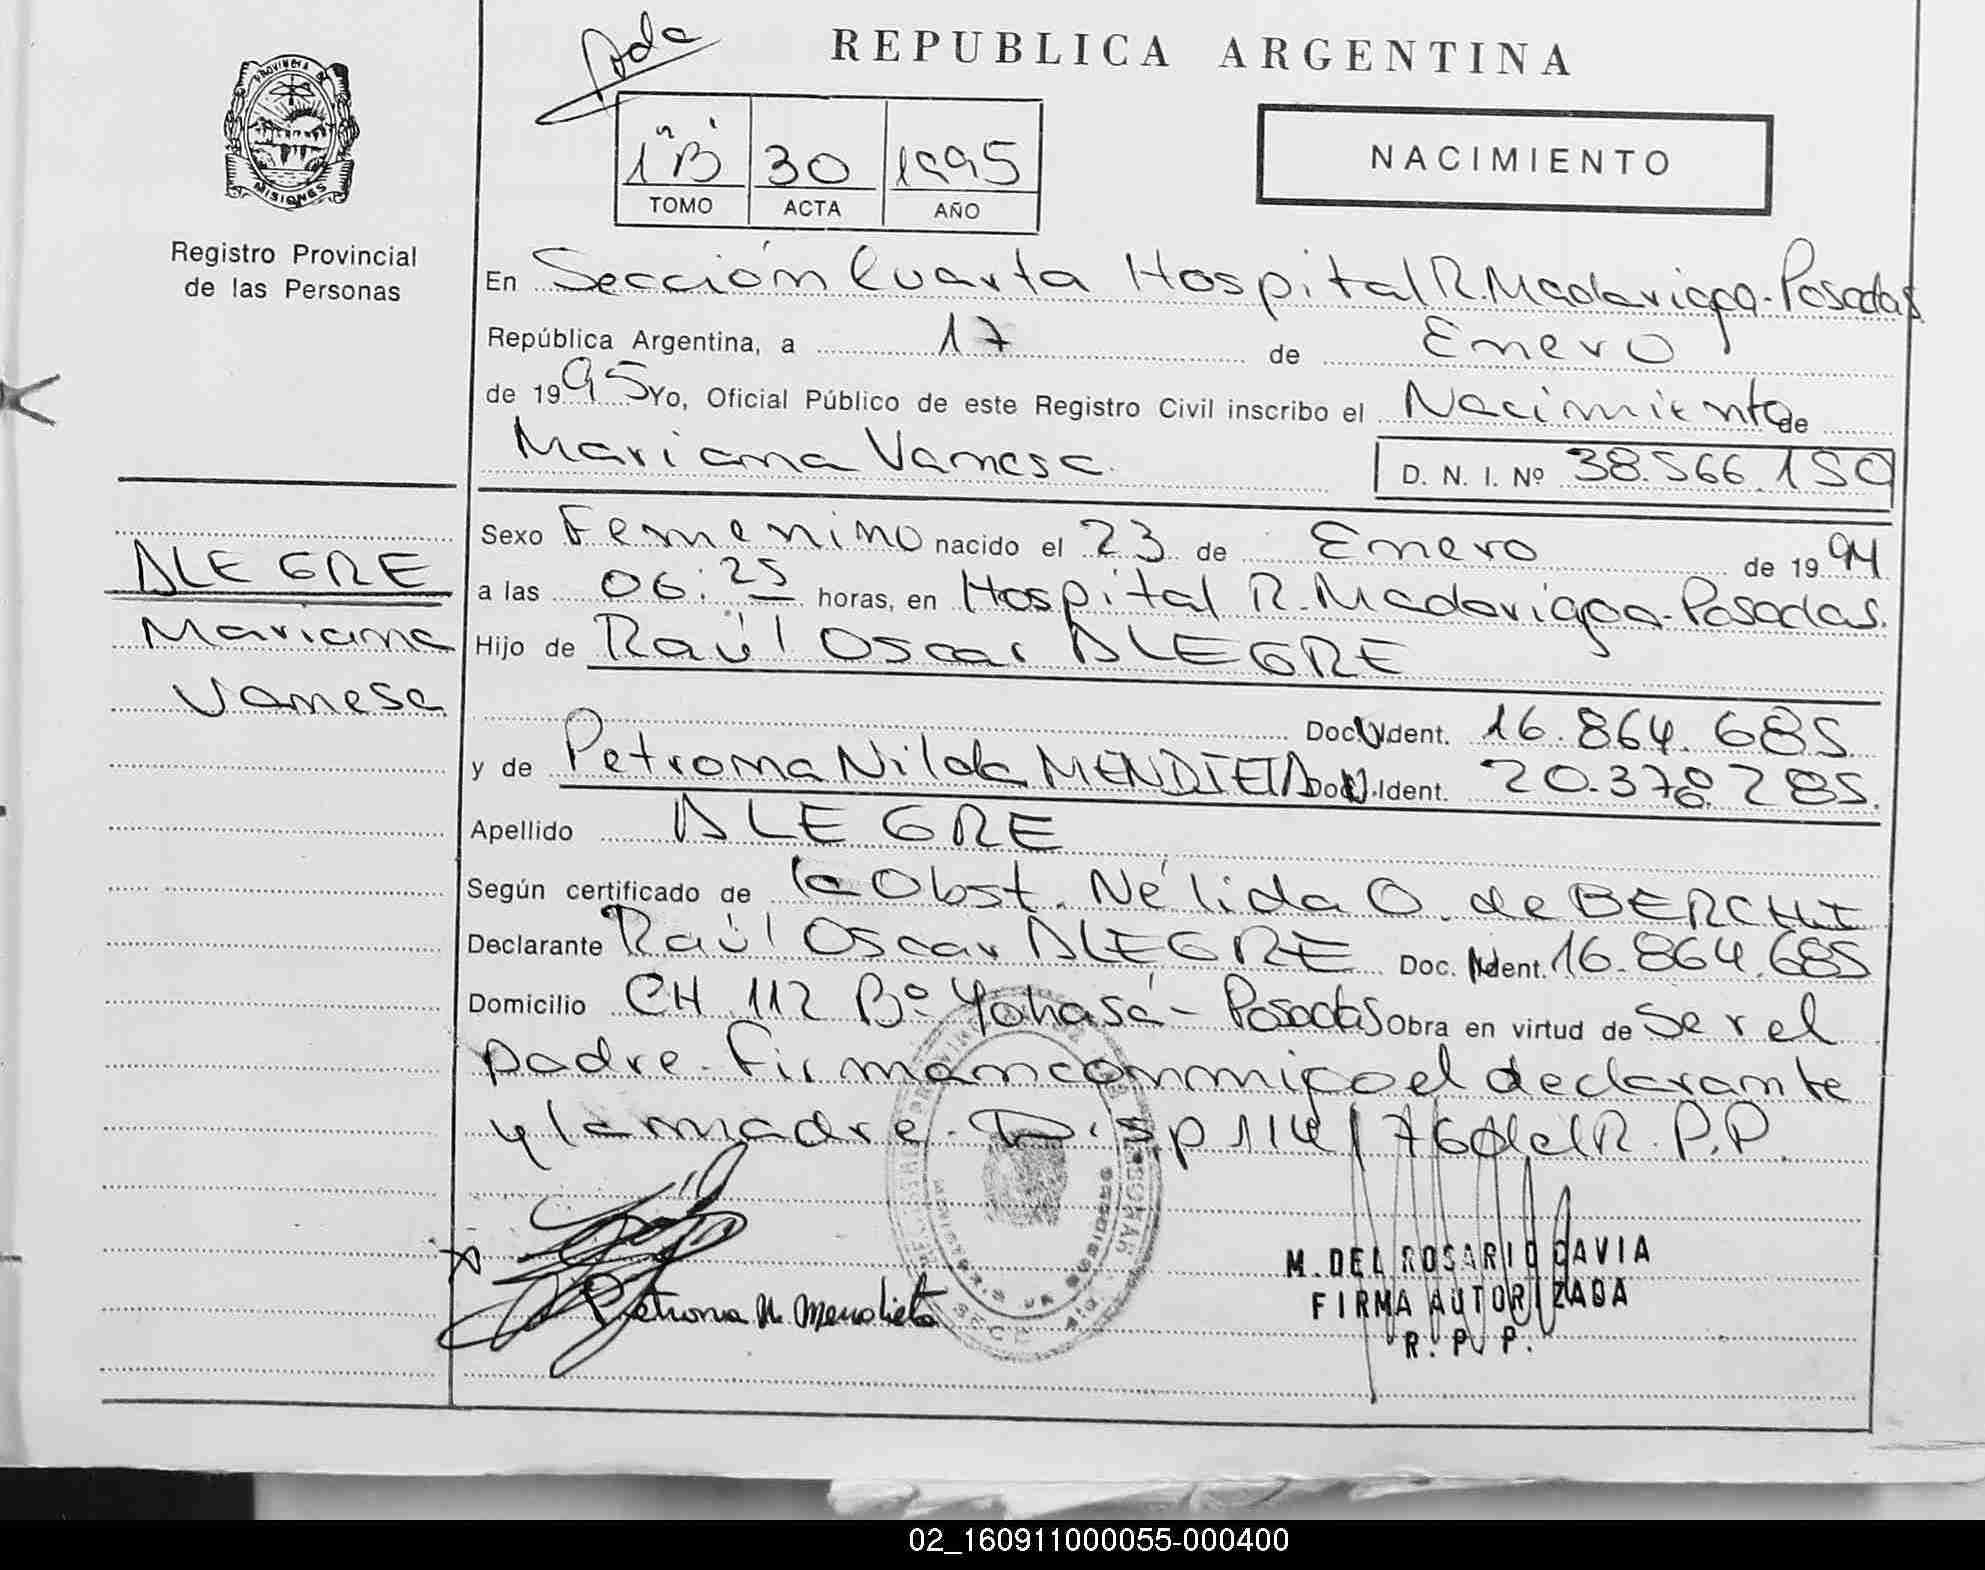 REPUBLICA ARGENTINA
PROVINCIA DE
MISIONES
Registro Provincial
de las Personas
1"B" 30 1995
TOMO ACTA AÑO
NACIMIENTO
En Sección Cuarta Hospital R. Madariaga-Posadas
República Argentina, a 17 de Enero
de 1995 Yo, Oficial Público de este Registro Civil inscribo el Nacimiento de
Mariana Vanesa. D. N. I. Nº 38.566.150
ALEGRE
Mariana
Vanesa
Sexo Femenino nacido el 23 de Enero de 1994
a las 06:25 horas, en Hospital R. Madariaga-Posadas.
Hijo de Raúl Oscar ALEGRE
Doc. Ident. 16.864.685
y de Petrona Nilda MENDIETA Doc. Ident. 20.378.285.
Apellido ALEGRE
Según certificado de la Obst. Nélida O. de BERCHI
Declarante Raúl Oscar ALEGRE Doc. Ident. 16.864.685
Domicilio CH 112 Bº Yohasá - Posadas Obra en virtud de ser el
padre. Firman conmigo el declarante
y la madre. Disp 114/76 del R.P.P.
Petrona N. Mendieta
M. DEL ROSARIO GAVIA
FIRMA AUTORIZADA
R. P. P.
02_160911000055-000400